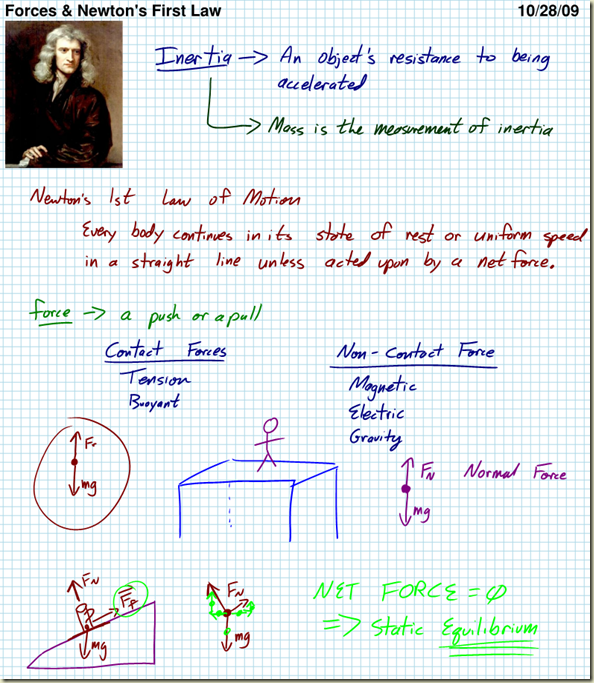 Forces & Newton's First Law 10/28/09
Inertia → An object's resistance to being
accelerated
→ Mass is the measurement of inertia
Newton's 1st Law of Motion
Every body continues in its state of rest or uniform speed
in a straight line unless acted upon by a net force.
force → a push or a pull
Contact Forces Non-Contact Force
Tension Magnetic
Buoyant Electric
Gravity
mg
FN Normal Force
mg
FN
mg
FN
mg
NET FORCE = φ
⇒ Static Equilibrium